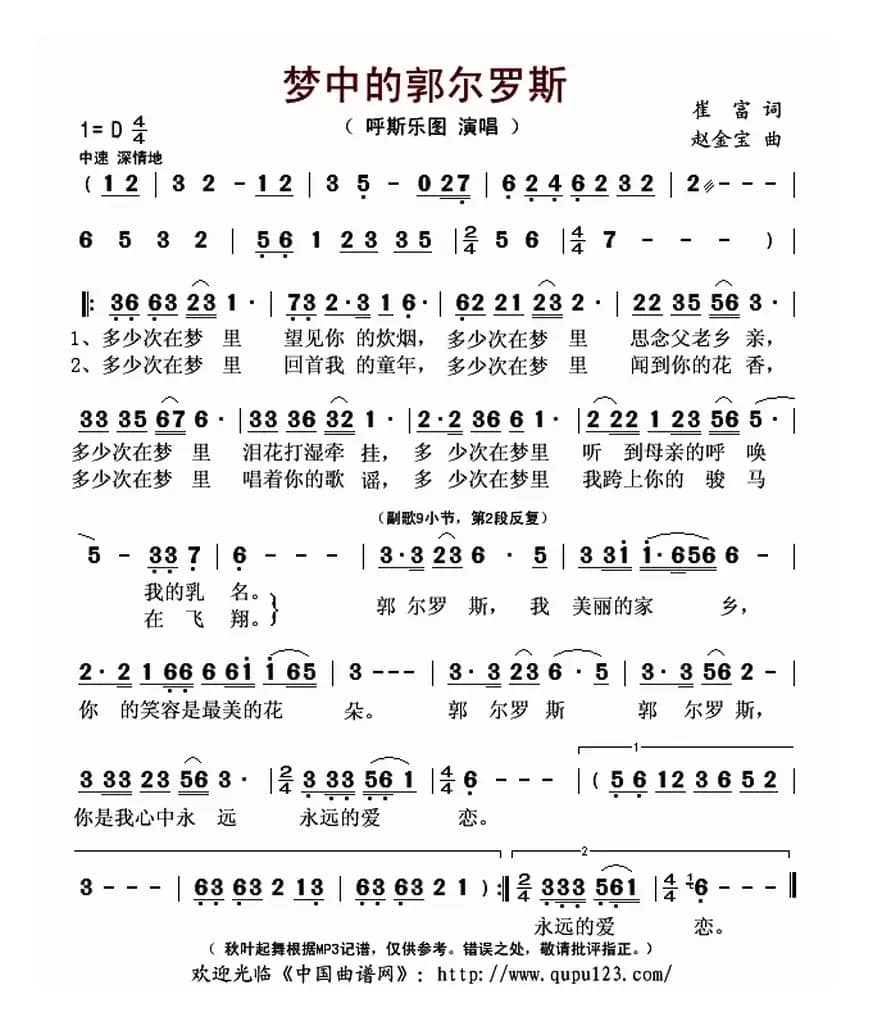 梦中的郭尔罗斯
（ 呼斯乐图 演唱 ）
崔 富 词
赵金宝 曲
1= D 4/4
中速 深情地
( 1 2 | 3 2 - 1 2 | 3 5 - 0 2 7 | 6 2 4 6 2 3 2 | 2 - - - |
6 5 3 2 | 5 6 1 2 3 3 5 | 2/4 5 6 | 4/4 7 - - - ) |
‖: 3 6 6 3 2 3 1 · | 7 3 2 · 3 1 6 · | 6 2 2 1 2 3 2 · | 2 2 3 5 5 6 3 · |
1、多少次在梦 里 望见你 的炊烟， 多少次在梦 里 思念父老乡 亲，
2、多少次在梦 里 回首我 的童年， 多少次在梦 里 闻到你的花 香，
3 3 3 5 6 7 6 · | 3 3 3 6 3 2 1 · | 2 · 2 3 6 6 1 · | 2 2 2 1 2 3 5 6 5 · |
多少次在梦 里 泪花打湿牵 挂， 多 少次在梦里 听 到母亲的呼 唤
多少次在梦 里 唱着你的歌 谣， 多 少次在梦里 我跨上你的 骏 马
（副歌9小节，第2段反复）
5 - 3 3 7 | 6 - - - | 3 · 3 2 3 6 · 5 | 3 3 1 1 · 6 5 6 6 - |
我的乳 名。 郭 尔罗 斯， 我 美丽的家 乡，
在 飞 翔。
2 · 2 1 6 6 6 6 1 1 6 5 | 3 - - - | 3 · 3 2 3 6 · 5 | 3 · 3 5 6 2 - |
你 的笑容是最美的花 朵。 郭 尔罗 斯 郭 尔罗 斯，
1
3 3 3 2 3 5 6 3 · | 2/4 3 3 3 5 6 1 | 4/4 6 - - - | ( 5 6 1 2 3 6 5 2 |
你是我心中永 远 永远的爱 恋。
2
3 - - - | 6 3 6 3 2 1 3 | 6 3 6 3 2 1 ) :‖ 2/4 3 3 3 5 6 1 | 4/4 1 6 - - - ‖
永远的爱 恋。
（ 秋叶起舞根据MP3记谱，仅供参考。错误之处，敬请批评指正。）
欢迎光临《中国曲谱网》：http://www.qupu123.com/